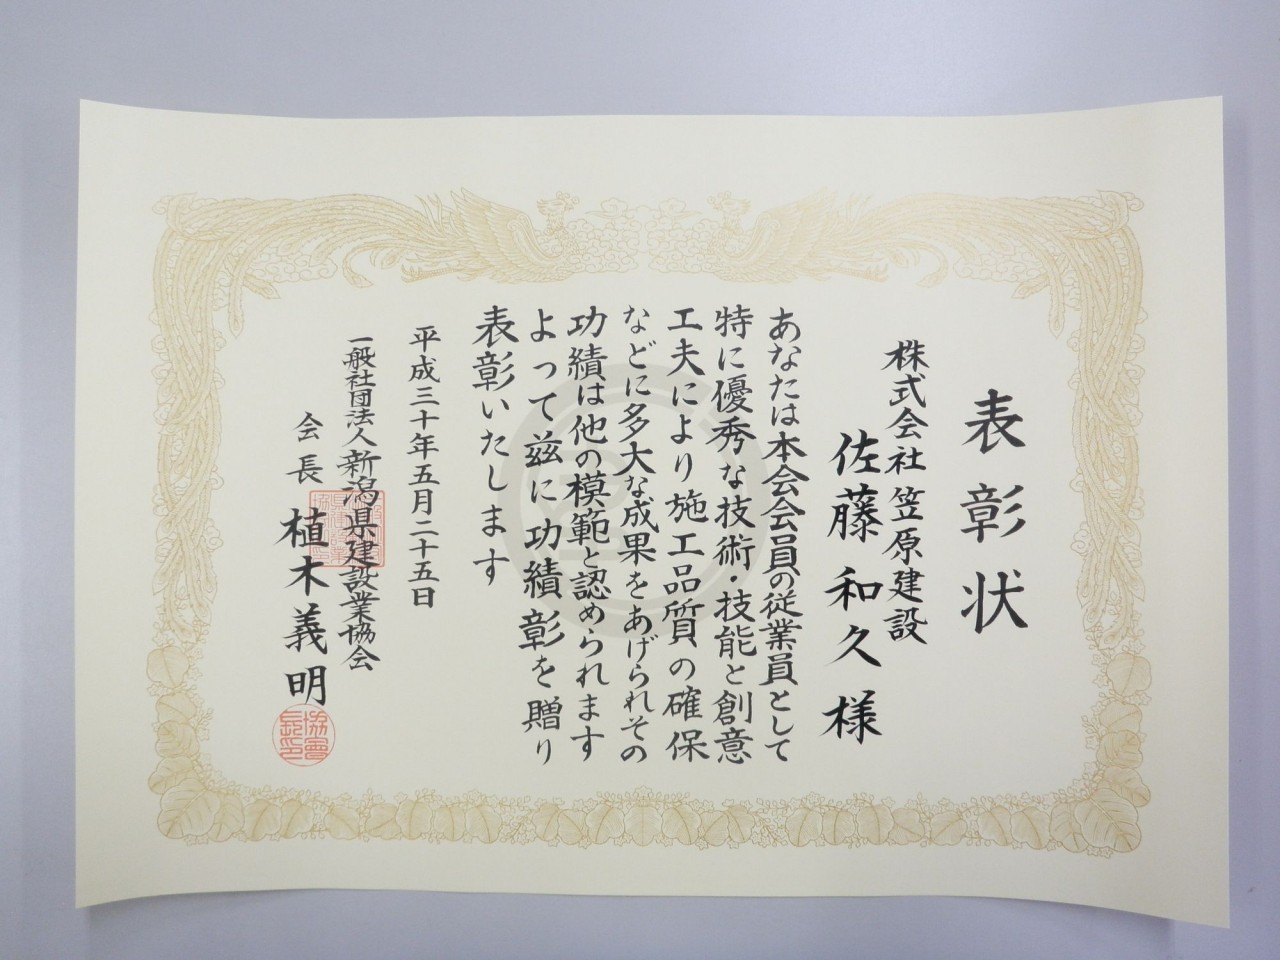 表彰状
株式会社 笠原建設
佐藤和久様
あなたは本会会員の従業員として
特に優秀な技術・技能と創意
工夫により施工品質の確保
などに多大な成果をあげられその
功績は他の模範と認められます
よって茲に功績彰を贈り
表彰いたします
平成三十年五月二十五日
一般社団法人新潟県建設業協会
会長 植木義明